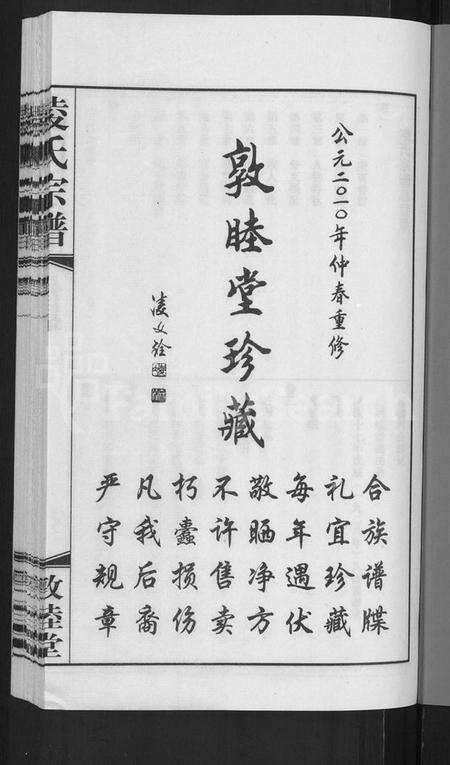 公元二〇一〇年仲春重修
敦睦堂珍藏
凌文铨
合族谱牒
礼宜珍藏
每年遇伏
敬晒净方
不许售卖
朽蠹损伤
凡我后裔
严守规章
凌氏宗谱
敦睦堂